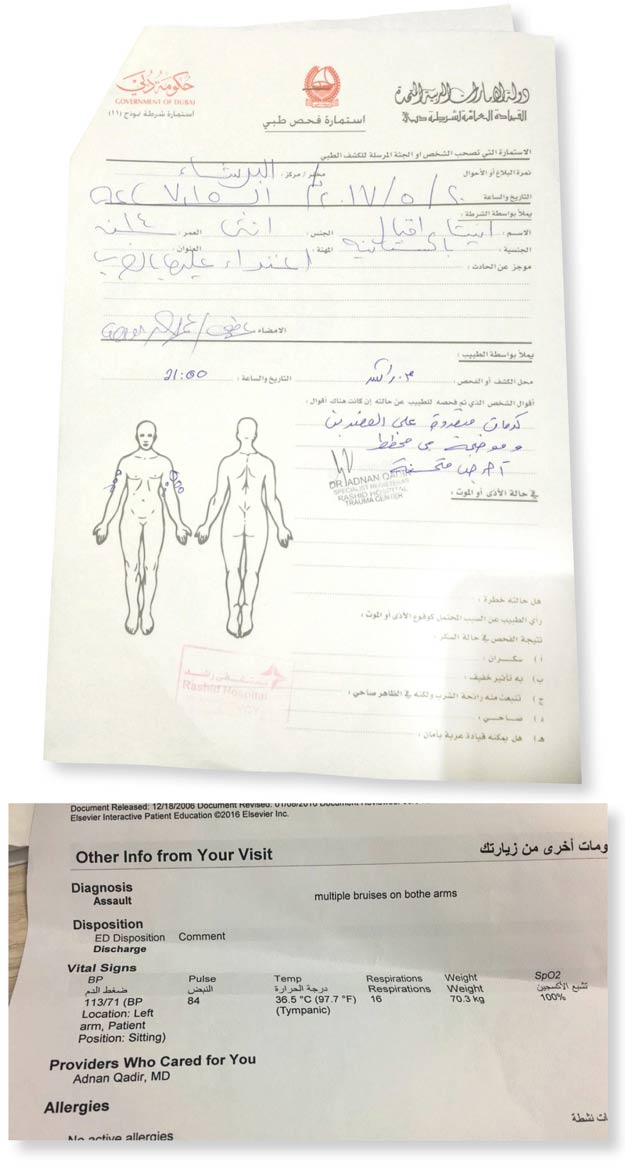 حكومة دبي
GOVERNMENT OF DUBAI
استمارة شرطة نموذج (١١)
استمارة فحص طبي
دولة الإمارات العربية المتحدة
القيادة العامة لشرطة دبي
الاستمارة التي تصحب الشخص او الجثة المرسلة للكشف الطبي
نمرة البلاغ أو الأحوال مخفر / مركز : البرشاء
التاريخ والساعة ٢٠١٧/٥/٢٠م
يملأ بواسطة الشرطة :
الاسم : اقبال الجنس : انثى العمر :
الجنسية : باكستانيه المهنة : العنوان :
موجز عن الحادث : اعتداء عليها بالضرب
الامضاء
يملأ بواسطة الطبيب :
محل الكشف أو الفحص : م. راشد التاريخ والساعة : 21:00
أقوال الشخص الذي تم فحصه للطبيب عن حالته إن كانت هناك أقوال :
كدمات متعددة على العضدين
DR. ADNAN QADIR
SPECIALIST REGISTRAR
RASHID HOSPITAL
TRAUMA CENTER
في حالة الأذى أو الموت :
هل حالته خطرة :
رأي الطبيب عن السبب المحتمل كوقوع الأذى أو الموت :
نتيجة الفحص في حالة السكر :
أ ) سكران :
ب) به تأثير خفيف :
ج ) تنبعث منه رائحة الشرب ولكنه في الظاهر صاحي :
د ) صاحي :
هـ ) هل يمكنه قيادة عربة بأمان :
مستشفى راشد
Rashid Hospital
Document Released: 12/18/2006 Document Revised:
Elsevier Interactive Patient Education ©2016 Elsevier Inc.
Other Info from Your Visit
ومات أخرى من زيارتك
Diagnosis
Assault multiple bruises on bothe arms
Disposition
ED Disposition Comment
Discharge
Vital Signs
BP Pulse Temp Respirations Weight SpO2
ضغط الدم النبض درجة الحرارة Respirations Weight تشبع الأكسجين
113/71 (BP 84 36.5 °C (97.7 °F) 16 70.3 kg 100%
Location: Left (Tympanic)
arm, Patient
Position: Sitting)
Providers Who Cared for You
Adnan Qadir, MD
Allergies
ات نشطة
No active allergies